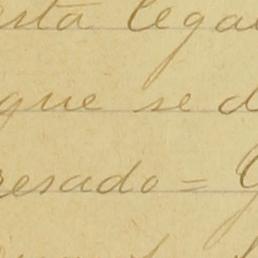 esta lega
que se d
resado =